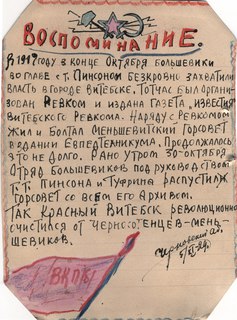 ВОСПОМИНАНИЕ.
В 1917 году в конце Октября большевики
во главе с т. Пинсоном безкровно захватили
власть в городе Витебске. Тотчас был органи-
зован Ревком и издана газета „Известия
Витебского Ревкома. Наряду с Ревкомом
жил и болтал Меньшевитский горсовет
в здании Евпедтехникума. Продолжалось
это не долго. Рано утром 30-октября
отряд большевиков под руководством
т.т. Пинсона и Туфрина распустили
горсовет со всем его архивом.
Так красный Витебск революционно
счистился от черносотенцев-мень-
шевиков.
ВКП(б)